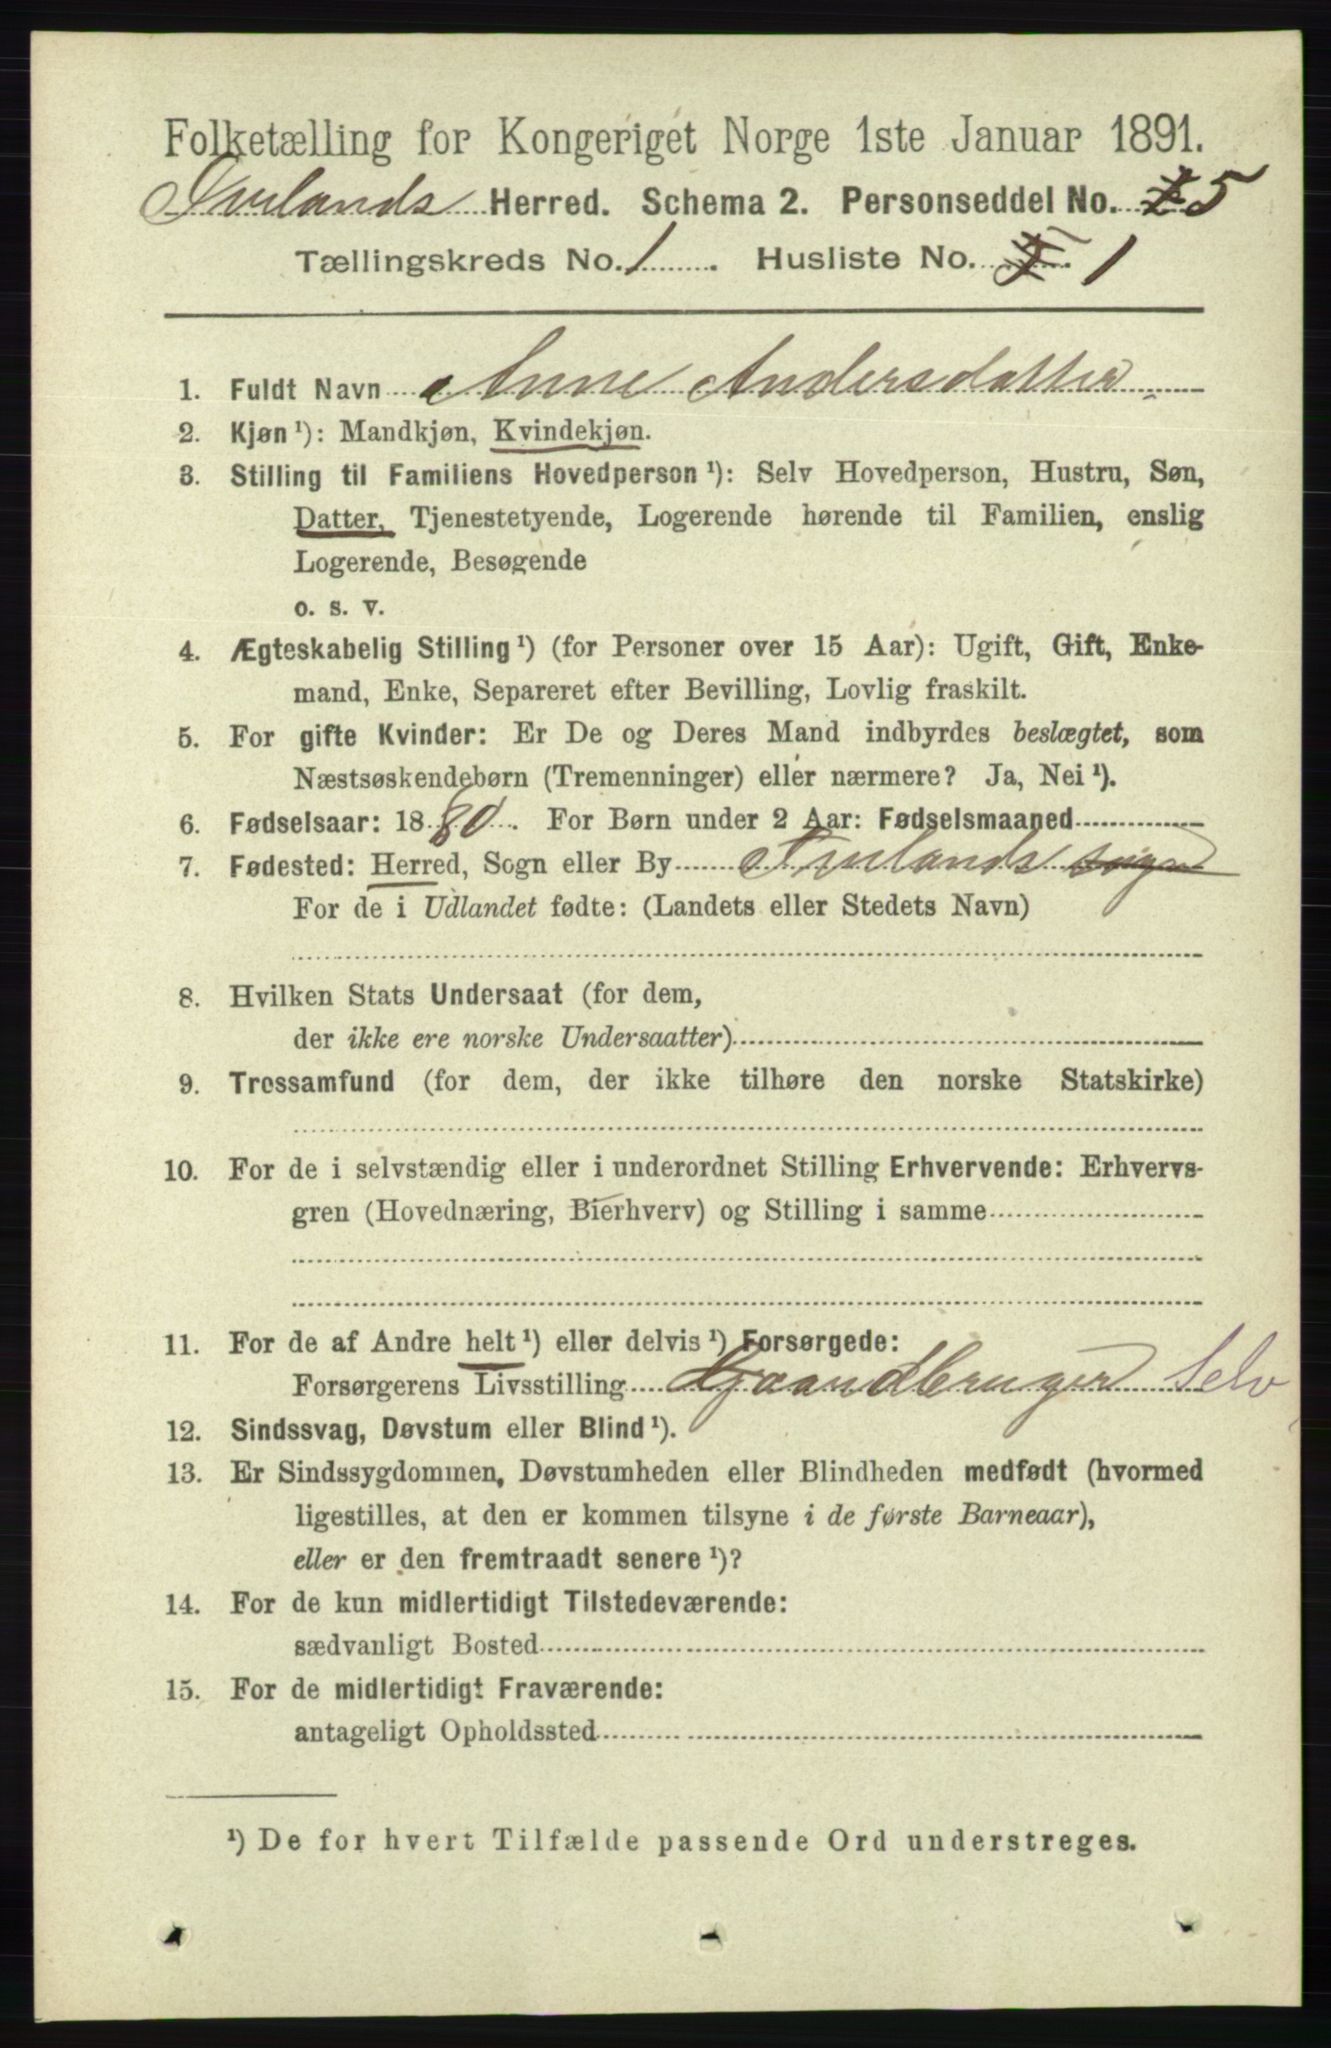 Folketælling for Kongeriget Norge 1ste Januar 1891.
Ivelands Herred. Schema 2. Personseddel No. 5
Tællingskreds No. 1. Husliste No. 1
1. Fuldt Navn Anne Andersdatter
2. Kjøn ¹): Mandkjøn, Kvindekjøn.
3. Stilling til Familiens Hovedperson ¹): Selv Hovedperson, Hustru, Søn,
Datter, Tjenestetyende, Logerende hørende til Familien, enslig
Logerende, Besøgende
o. s. v.
4. Ægteskabelig Stilling ¹) (for Personer over 15 Aar): Ugift, Gift, Enke-
mand, Enke, Separeret efter Bevilling, Lovlig fraskilt.
5. For gifte Kvinder: Er De og Deres Mand indbyrdes beslægtet, som
Næstsøskendebørn (Tremenninger) eller nærmere? Ja, Nei ¹).
6. Fødselsaar: 1880. For Børn under 2 Aar: Fødselsmaaned
7. Fødested: Herred, Sogn eller By Ivelands sogn
For de i Udlandet fødte: (Landets eller Stedets Navn)
8. Hvilken Stats Undersaat (for dem,
der ikke ere norske Undersaatter)
9. Trossamfund (for dem, der ikke tilhøre den norske Statskirke)
10. For de i selvstændig eller i underordnet Stilling Erhvervende: Erhvervs-
gren (Hovednæring, Bierhverv) og Stilling i samme
11. For de af Andre helt ¹) eller delvis ¹) Forsørgede:
Forsørgerens Livsstilling Gaardbruger Selv
12. Sindssvag, Døvstum eller Blind ¹).
13. Er Sindssygdommen, Døvstumheden eller Blindheden medfødt (hvormed
ligestilles, at den er kommen tilsyne i de første Barneaar),
eller er den fremtraadt senere ¹)?
14. For de kun midlertidigt Tilstedeværende:
sædvanligt Bosted
15. For de midlertidigt Fraværende:
antageligt Opholdssted
¹) De for hvert Tilfælde passende Ord understreges.